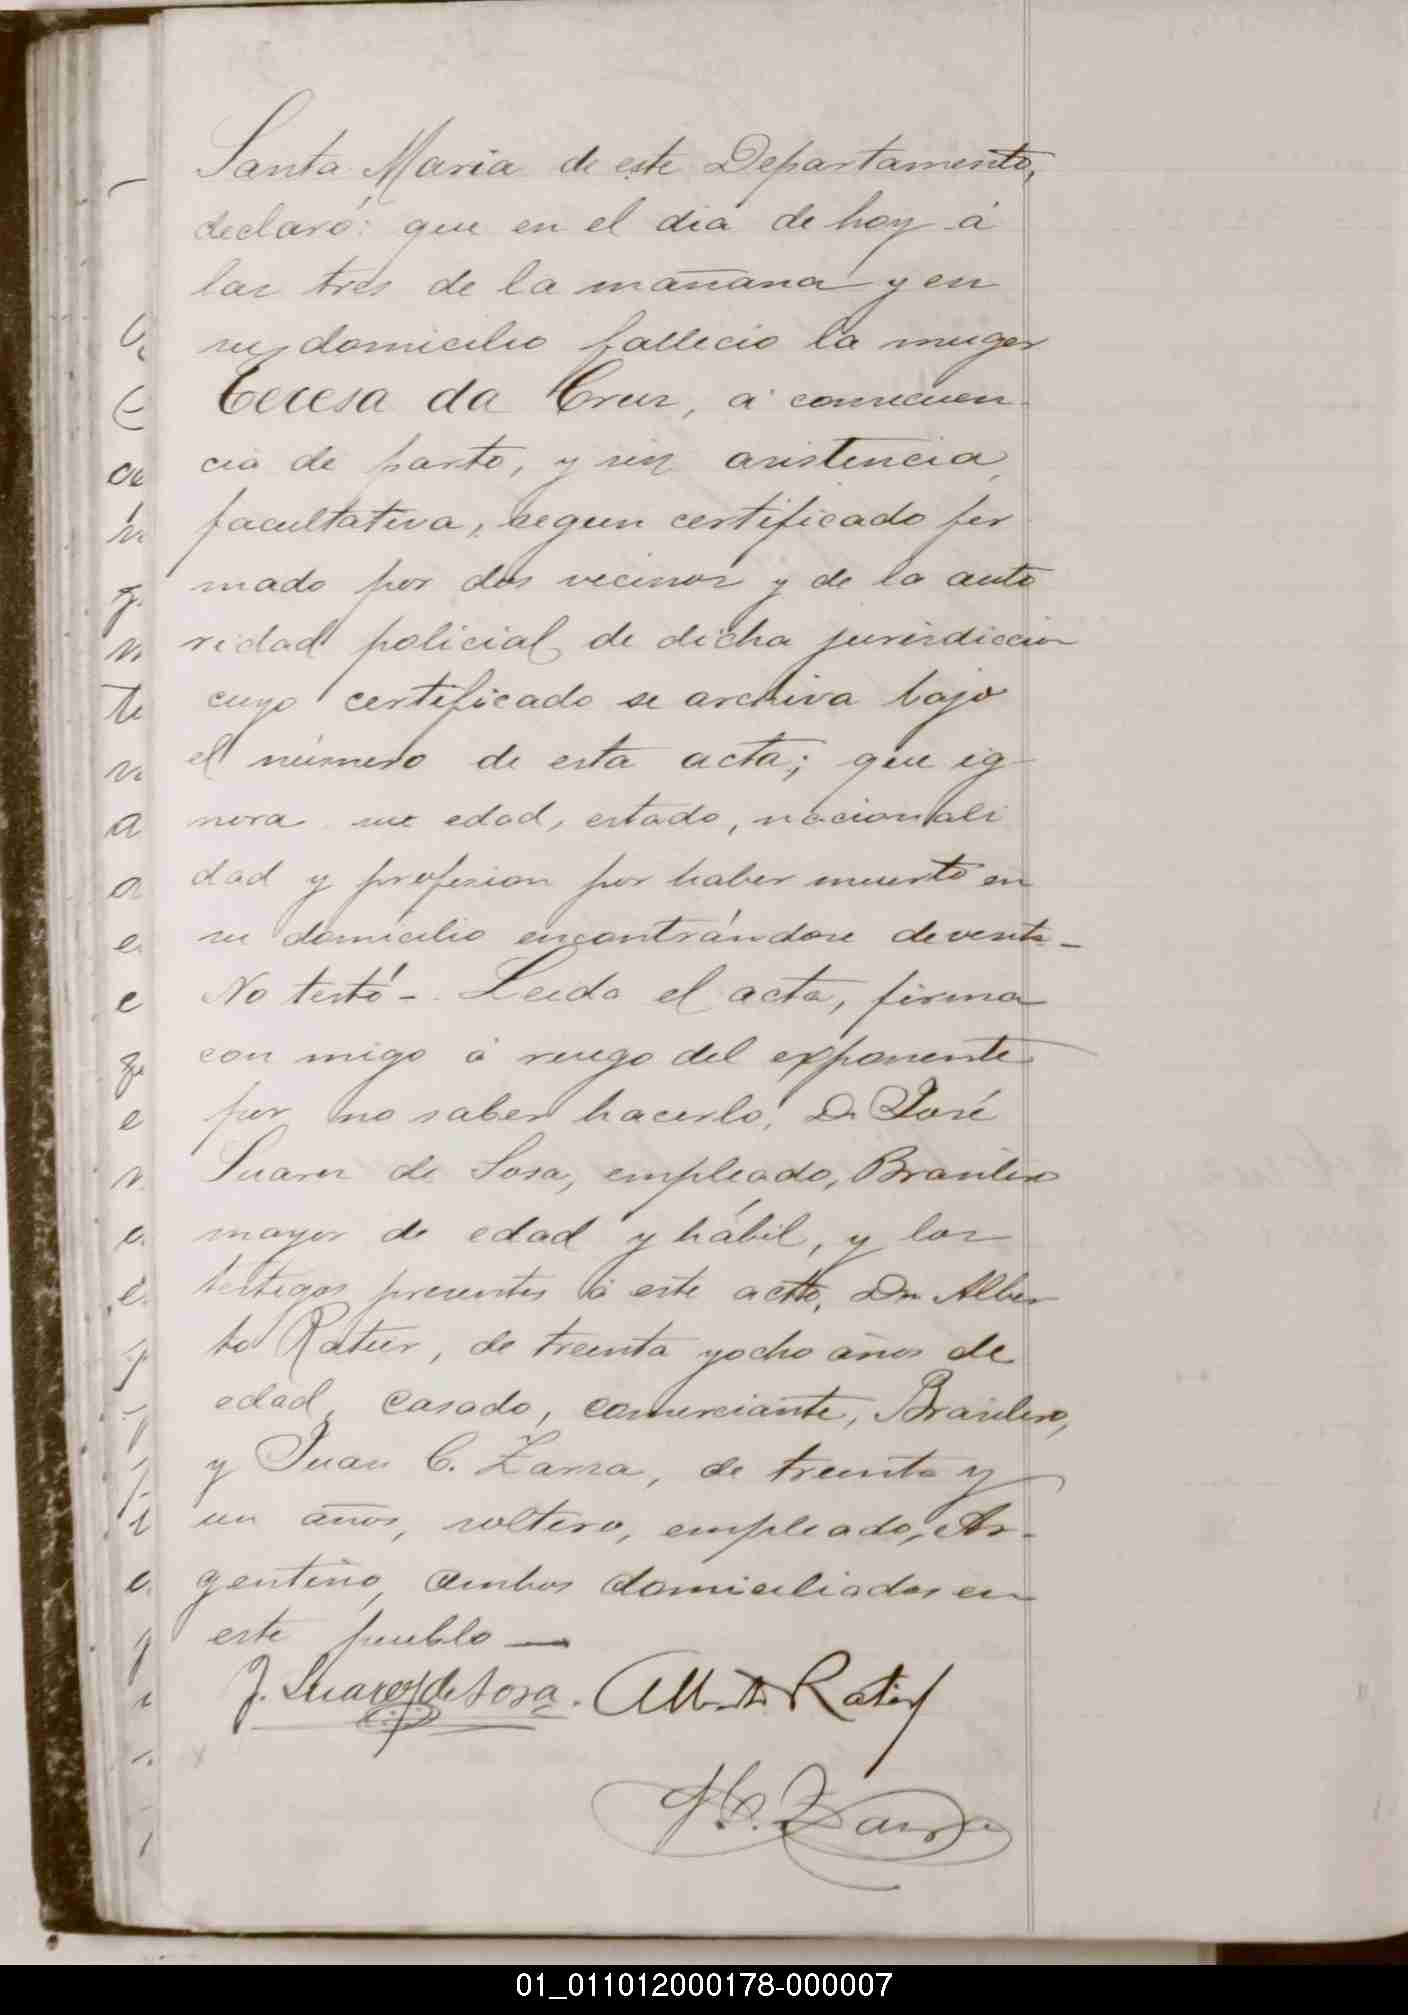 Santa Maria de este Departamento,
declaró: que en el dia de hoy á
las tres de la mañana y en
su domicilio fallecio la muger
Teresa da Cruz, á consecuen
cia de parto, y sin asistencia
facultativa, segun certificado fir
mado por dos vecinos y de la auto
ridad policial de dicha jurisdiccion
cuyo certificado se archiva bajo
el número de esta acta; que ig
nora su edad, estado, nacionali
dad y profesion por haber muerto en
su domicilio encontrándose de
No testó - Leida el acta, firma
con migo á ruego del exponente
por no saber hacerlo, Dn José
Suarez de Sosa, empleado, Brasilero
mayor de edad y hábil, y los
testigos presentes á este acto, Dn Alber
to Ratier, de treinta y ocho años de
edad, casado, comerciante, Brasilero,
y Juan C. Zarza, de treinta y
un años, soltero, empleado, Ar-
gentino, ambos domiciliados en
este pueblo —
J. Suarez de Sosa. Alberto Ratier
J. C. Zarza
01_011012000178-000007